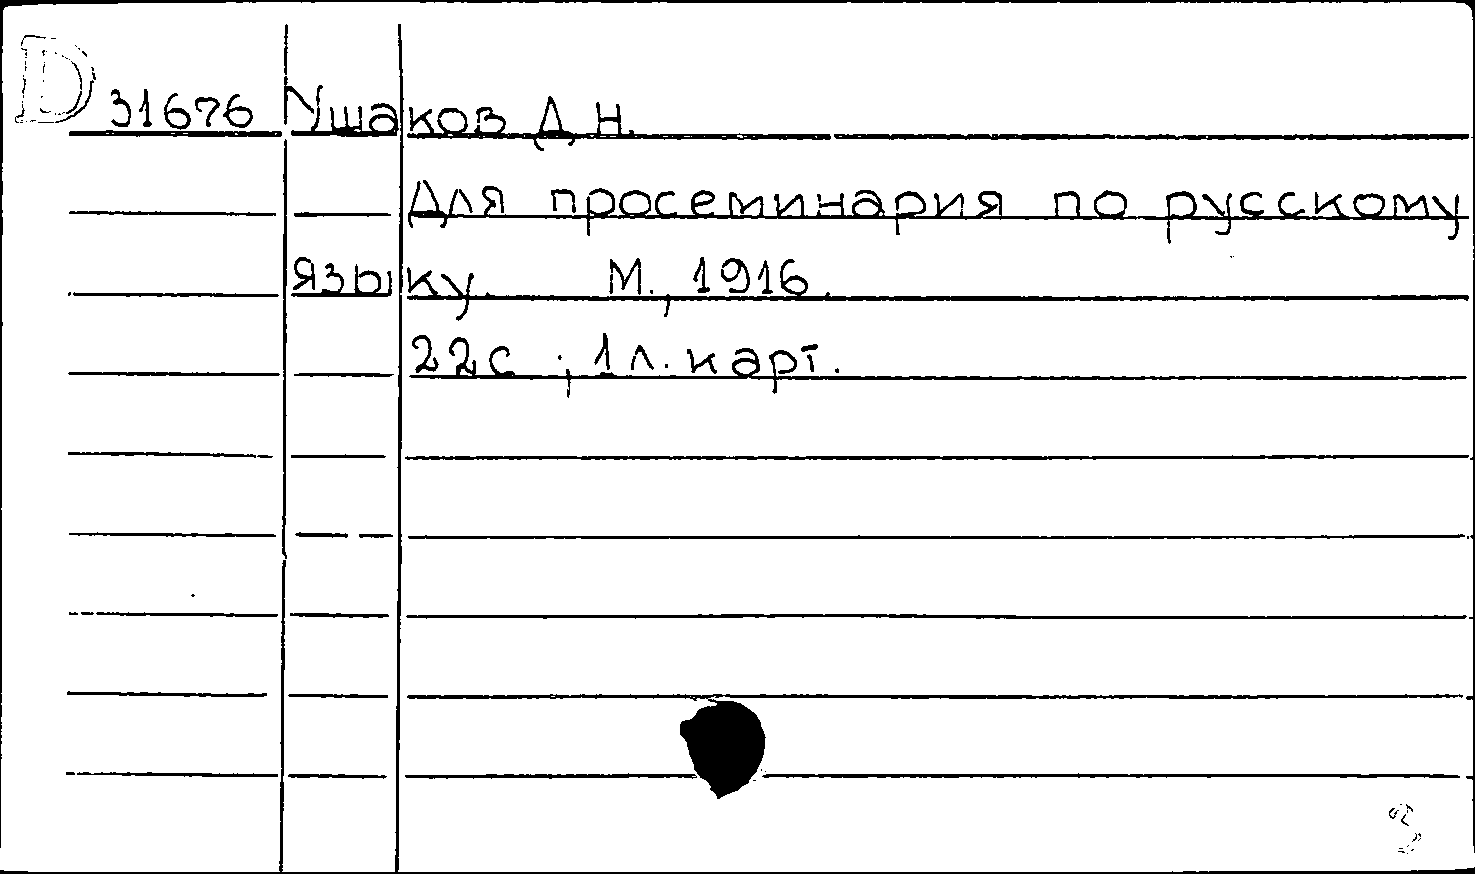 D 31676 Ушаков Д.Н.
Для просеминария по русскому
языку. М., 1916.
22с ; 1 л. карт.
3